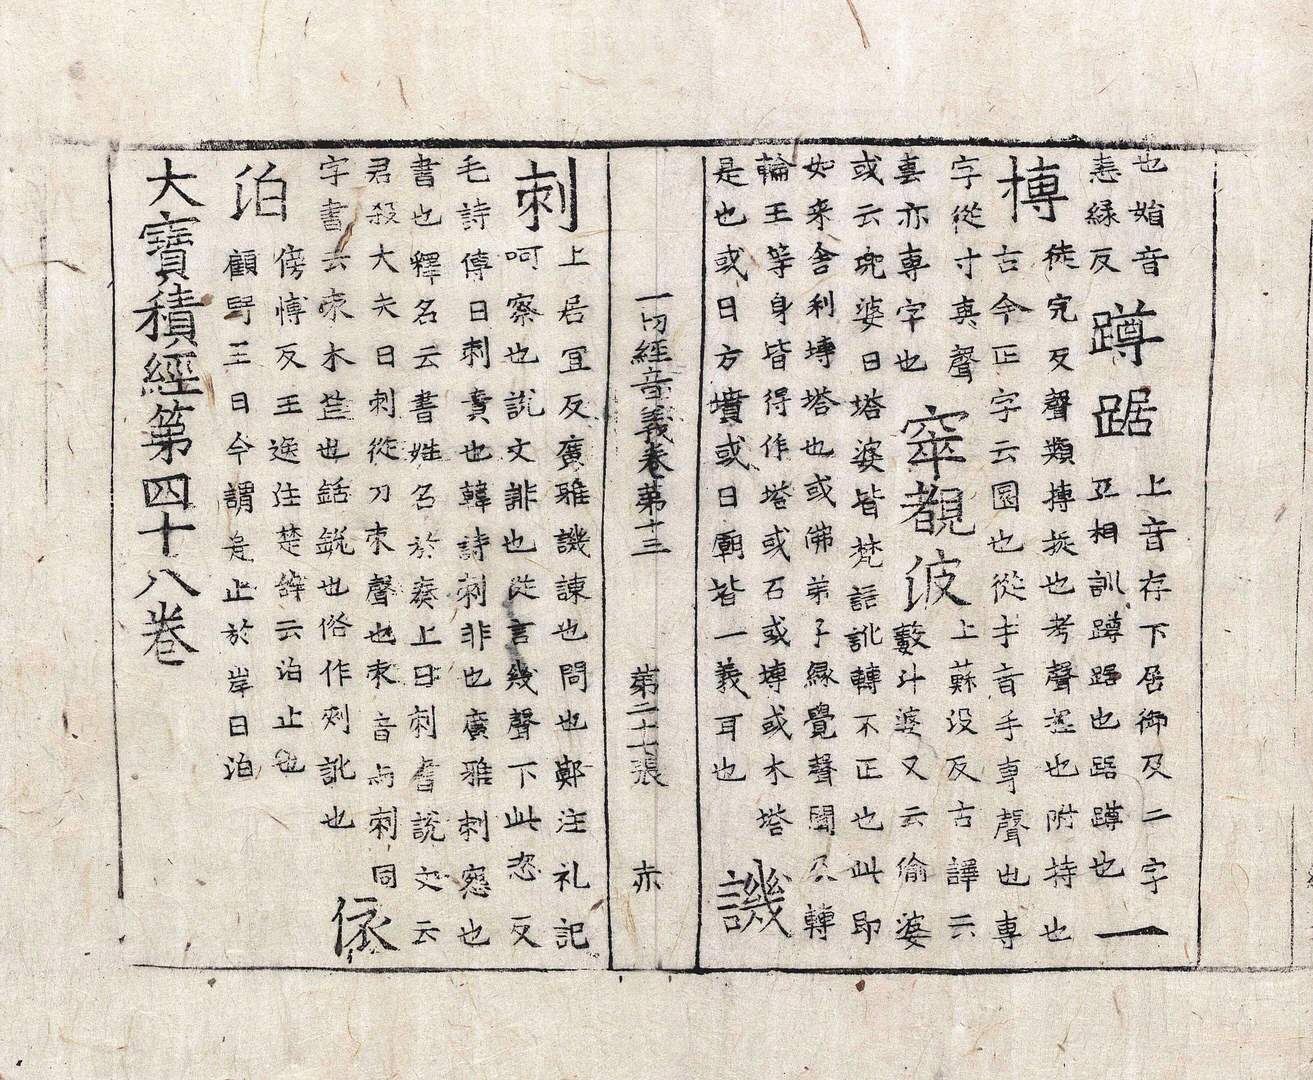 也媨音恚縁反蹲踞上音存下居御反二字互相訓蹲踞也踞蹲也一
摶徒完反聲類摶捖也考聲摶也附持也古今正字云圓也從扌音手專聲也專
字從寸叀聲叀亦專字也窣覩波上蘇没反古譯云藪斗婆又云偷婆
或云兜婆曰塔婆皆梵語訛轉不正也此即如来舍利塼塔也或佛弟子縁覺聲聞及轉
輪王等身皆得作塔或石或塼或木塔是也或曰方墳或曰廟皆一義耳也譏
一切經音義卷第十三 第二十七張 亦
刺上居宜反廣雅譏諫也問也鄭注礼記呵察也說文誹也從言幾聲下此恣反
毛詩傳曰刺責也韓詩刺非也廣雅刺怨也書也釋名云書姓名於奏上曰刺書說文云
君殺大夫曰刺從刀朿聲也朿音与刺同字書云朿木芒也銛鋭也俗作刾訛也依
泊傍愽反王逸注楚辝云泊止也顧野王曰今謂舟止於岸曰泊
大寶積經第四十八卷